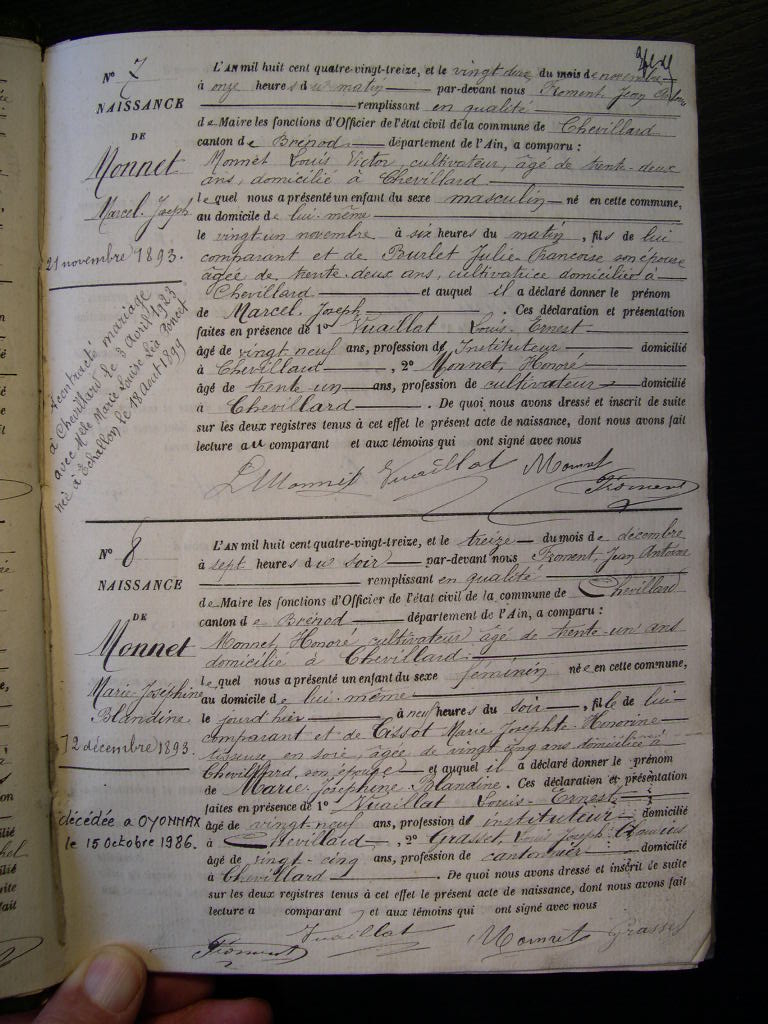 N° 7
NAISSANCE
DE
Monnet
Marcel Joseph
21 novembre 1893.
A contracté mariage
à Chevillard le 3 avril 1923
avec Melle Marie Louise Léa Poncet
née à Échallon le 18 août 1899
L'AN mil huit cent quatre-vingt-treize, et le vingt deux du mois de novembre
à onze heures du matin par-devant nous Froment Jean
remplissant en qualité
de Maire les fonctions d'Officier de l'état civil de la commune de Chevillard
canton de Brénod département de l'Ain, a comparu :
Monnet Louis Victor, cultivateur, âgé de trente-deux
ans, domicilié à Chevillard
le quel nous a présenté un enfant du sexe masculin né en cette commune,
au domicile de lui-même
le vingt-un novembre à six heures du matin, fils de lui
comparant et de Burlet Julie Françoise son épouse
âgée de trente-deux ans, cultivatrice domiciliée à
Chevillard et auquel il a déclaré donner le prénom
de Marcel Joseph. Ces déclaration et présentation
faites en présence de 1° Vuaillat Louis Ernest
âgé de vingt neuf ans, profession de Instituteur domicilié
à Chevillard, 2° Monnet, Honoré
âgé de trente un ans, profession de cultivateur domicilié
à Chevillard. De quoi nous avons dressé et inscrit de suite
sur les deux registres tenus à cet effet le présent acte de naissance, dont nous avons fait
lecture au comparant et aux témoins qui ont signé avec nous
L Monnet Vuaillat Monnet
Froment
N° 8
NAISSANCE
DE
Monnet
Marie Joséphine
Blandine
12 décembre 1893.
décédée à OYONNAX
le 15 Octobre 1986.
L'AN mil huit cent quatre-vingt-treize, et le treize du mois de décembre
à sept heures du soir par-devant nous Froment Jean Antoine
remplissant en qualité
de Maire les fonctions d'Officier de l'état civil de la commune de Chevillard
canton de Brénod département de l'Ain, a comparu :
Monnet, Honoré cultivateur âgé de trente-un ans
domicilié à Chevillard
le quel nous a présenté un enfant du sexe féminin née en cette commune,
au domicile de lui-même
le jourd'hier à neuf heures du soir, fille de lui
comparant et de Tissot Marie Josephte Honorine
tisseuse en soie, âgée de vingt cinq ans domiciliée à
Chevillard, son épouse et auquel il a déclaré donner le prénom
de Marie Joséphine Blandine. Ces déclaration et présentation
faites en présence de 1° Vuaillat Louis Ernest
âgé de vingt-neuf ans, profession de instituteur domicilié
à Chevillard, 2° Grasset, Louis Joseph
âgé de vingt-cinq ans, profession de cantonnier domicilié
à Chevillard. De quoi nous avons dressé et inscrit de suite
sur les deux registres tenus à cet effet le présent acte de naissance, dont nous avons fait
lecture a comparant et aux témoins qui ont signé avec nous
Vuaillat
Froment Monnet Grasset